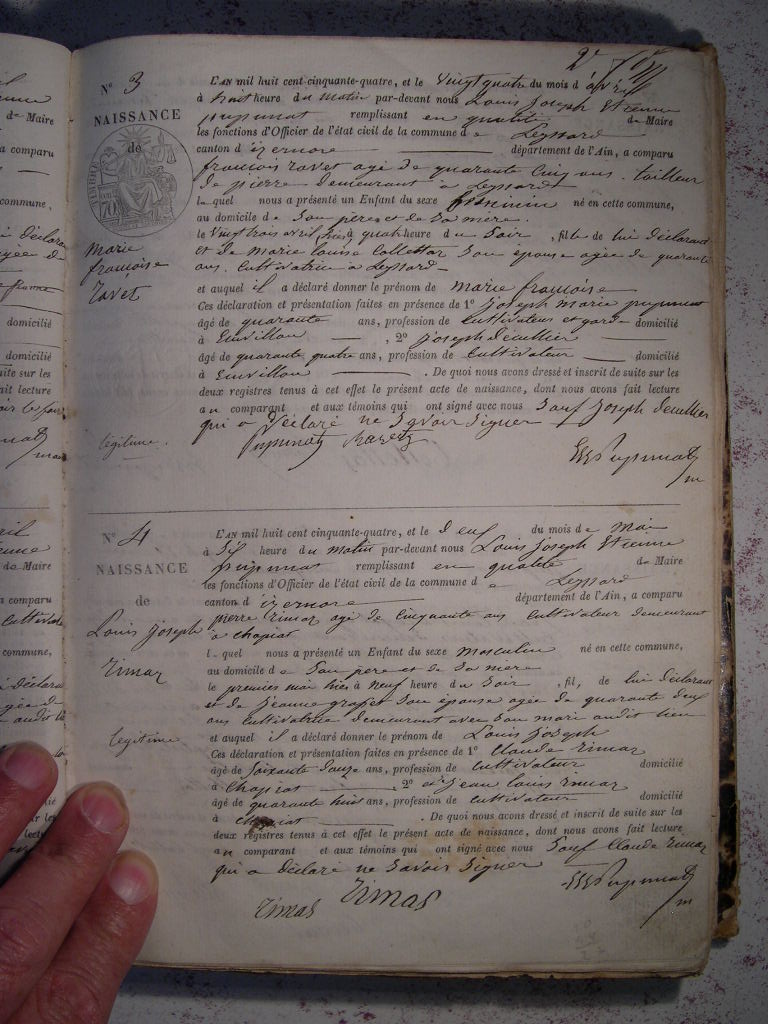 N° 3
NAISSANCE
de
Marie
françoise
Ravet
légitime.
L'AN mil huit cent-cinquante-quatre, et le Vingt quatre du mois d'avril
à huit heure du Matin par-devant nous Louis Joseph Etienne
pupunat remplissant en qualité de Maire
les fonctions d'Officier de l'état civil de la commune de Leyssard
canton d'izernore département de l'Ain, a comparu
françois Ravet agé de quarante Cinq ans. tailleur
de pierre demeurant à Leyssard
lequel nous a présenté un Enfant du sexe féminin né en cette commune,
au domicile de Son père et de Sa mère.
le Vingt trois avril, hier, à quatre heure du Soir, fille de lui déclarant
et de Marie Louise Collettaz Son épouse agée de quarante
ans. Cultivatrice à Leyssard
et auquel il a déclaré donner le prénom de Marie françoise
Ces déclaration et présentation faites en présence de 1° Joseph Marie pupunat
âgé de quarante ans, profession de Cultivateur et garde domicilié
à Solvillon, 2° joseph
âgé de quarante quatre ans, profession de Cultivateur domicilié
à . De quoi nous avons dressé et inscrit de suite sur les
deux registres tenus à cet effet le présent acte de naissance, dont nous avons fait lecture
au comparant et aux témoins qui ont signé avec nous Sauf Joseph
qui a déclaré ne Savoir Signer
Pupunat Ravet
Pupunat
m
N° 4
NAISSANCE
de
Louis Joseph
Rimaz
légitime
L'AN mil huit cent cinquante-quatre, et le Deux du mois de Mai
à Six heure du Matin par-devant nous Louis Joseph Etienne
pupunat remplissant en qualité de Maire
les fonctions d'Officier de l'état civil de la commune de Leyssard
canton d'izernore département de l'Ain, a comparu
pierre Rimaz agé de Cinquante ans Cultivateur demeurant
à Chapiat
lequel nous a présenté un Enfant du sexe Masculin né en cette commune,
au domicile de Son père et de Sa mère
le premier mai hier à neuf heure du Soir, fils, de lui déclarant
et de Jeanne Son épouse agée de quarante deux
ans Cultivatrice demeurant avec Son mari audit lieu
et auquel il a déclaré donner le prénom de Louis Joseph
Ces déclaration et présentation faites en présence de 1° Claude Rimaz
âgé de Soixante Douze ans, profession de Cultivateur domicilié
à Chapiat 2° Jean Louis Rimaz
âgé de quarante huit ans, profession de Cultivateur domicilié
à Chapiat . De quoi nous avons dressé et inscrit de suite sur les
deux registres tenus à cet effet le présent acte de naissance, dont nous avons fait lecture
au comparant et aux témoins qui ont signé avec nous Sauf Claude Rimaz
qui a déclaré ne Savoir Signer
Rimas Rimas
Pupunat
m